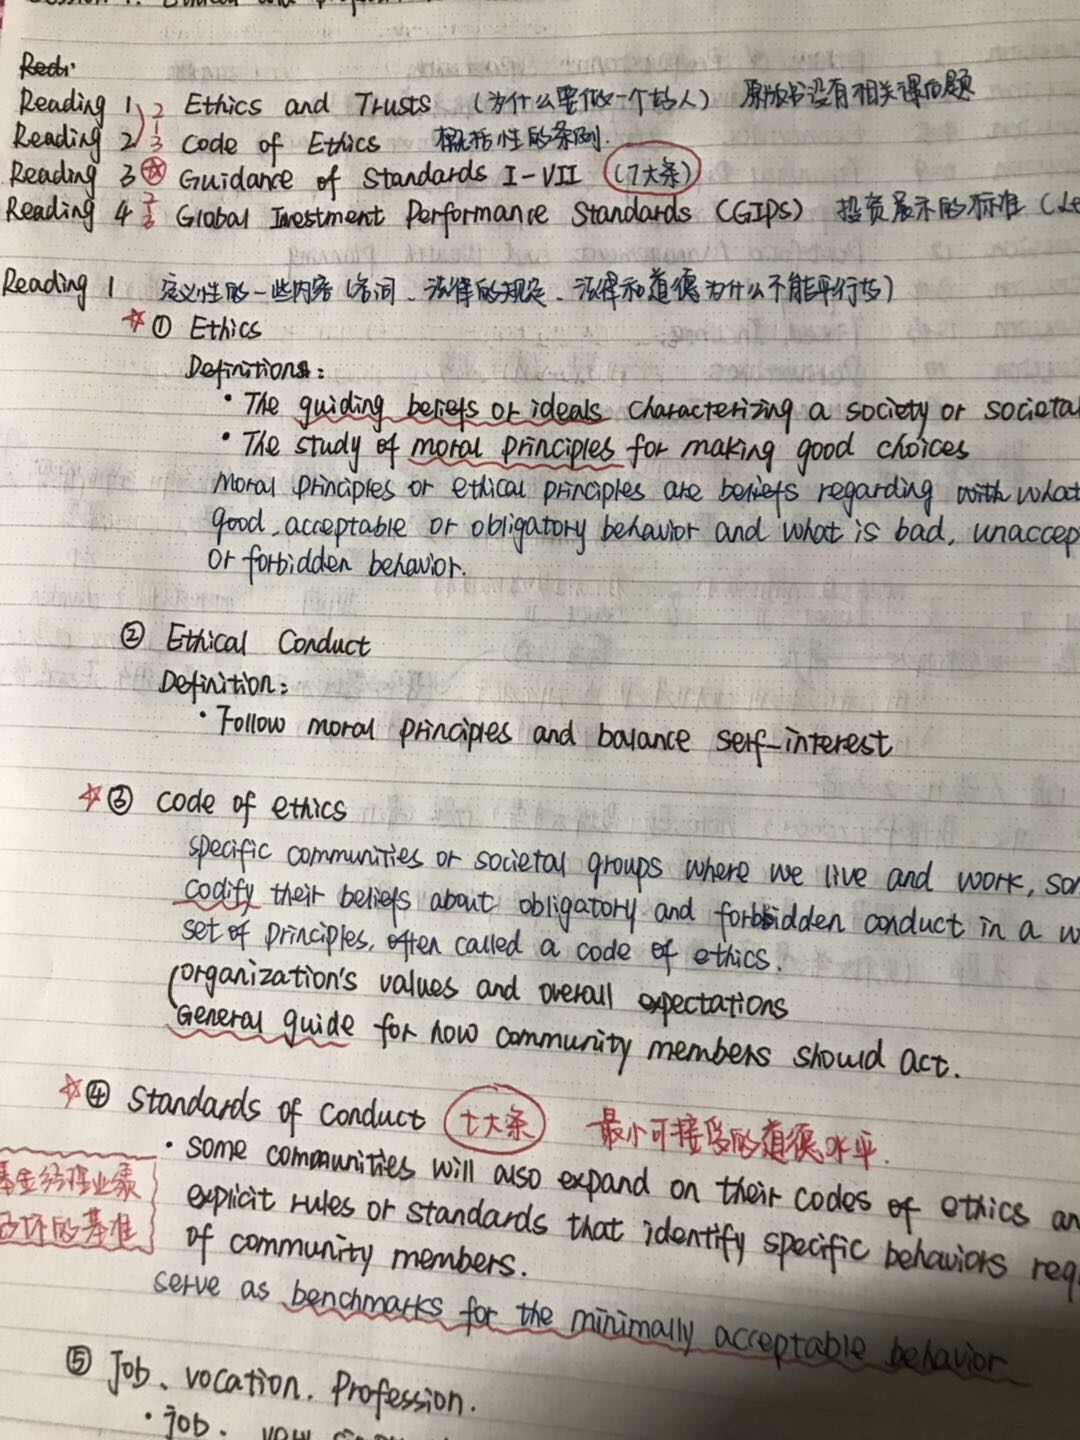 Redi
Reading 1 2 Ethics and Trusts (为什么要做一个好人) 原版书没有相关课后题
Reading 2 1 3 Code of Ethics 概括性的条例.
Reading 3 Guidance of Standards I-VII (7大条)
Reading 4 Global Investment Performance Standards (GIPS) 投资展示的标准 (
Reading 1 定义性的一些内容 (名词、法律的规定、法律和道德为什么不能平行等)
① Ethics
Definitions:
· The guiding beliefs or ideals characterizing a society or societal
· The study of moral principles for making good choices
Moral principles or ethical principles are beliefs regarding with what
good, acceptable or obligatory behavior and what is bad, unaccep
or forbidden behavior.
② Ethical Conduct
Definition:
· Follow moral principles and balance self-interest
③ Code of ethics
specific communities or societal groups where we live and work, som
codify their beliefs about obligatory and forbidden conduct in a w
set of principles, often called a code of ethics.
organization's values and overall expectations
General guide for how community members should act.
④ Standards of conduct 七大条 最小可接受的道德水平.
· Some communities will also expand on their codes of ethics an
基金经理业绩
explicit rules or standards that identify specific behaviors req
好坏的基准
of community members.
serve as benchmarks for the minimally acceptable behavior
⑤ Job、vocation. Profession.
· job.